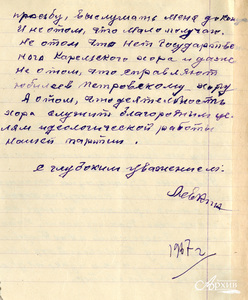 просьбу, выслушать меня до конца
И не о том, что мало получаю.
Не о том что нет Государстве
ного Карельского хора и даже
не о том, что справляют
юбилей Петровскому хору.
А о том, что деятельность
хора служит благородным це
лям идеологической работы
нашей партии.
с глубоким уважением:
1967 г
Архив